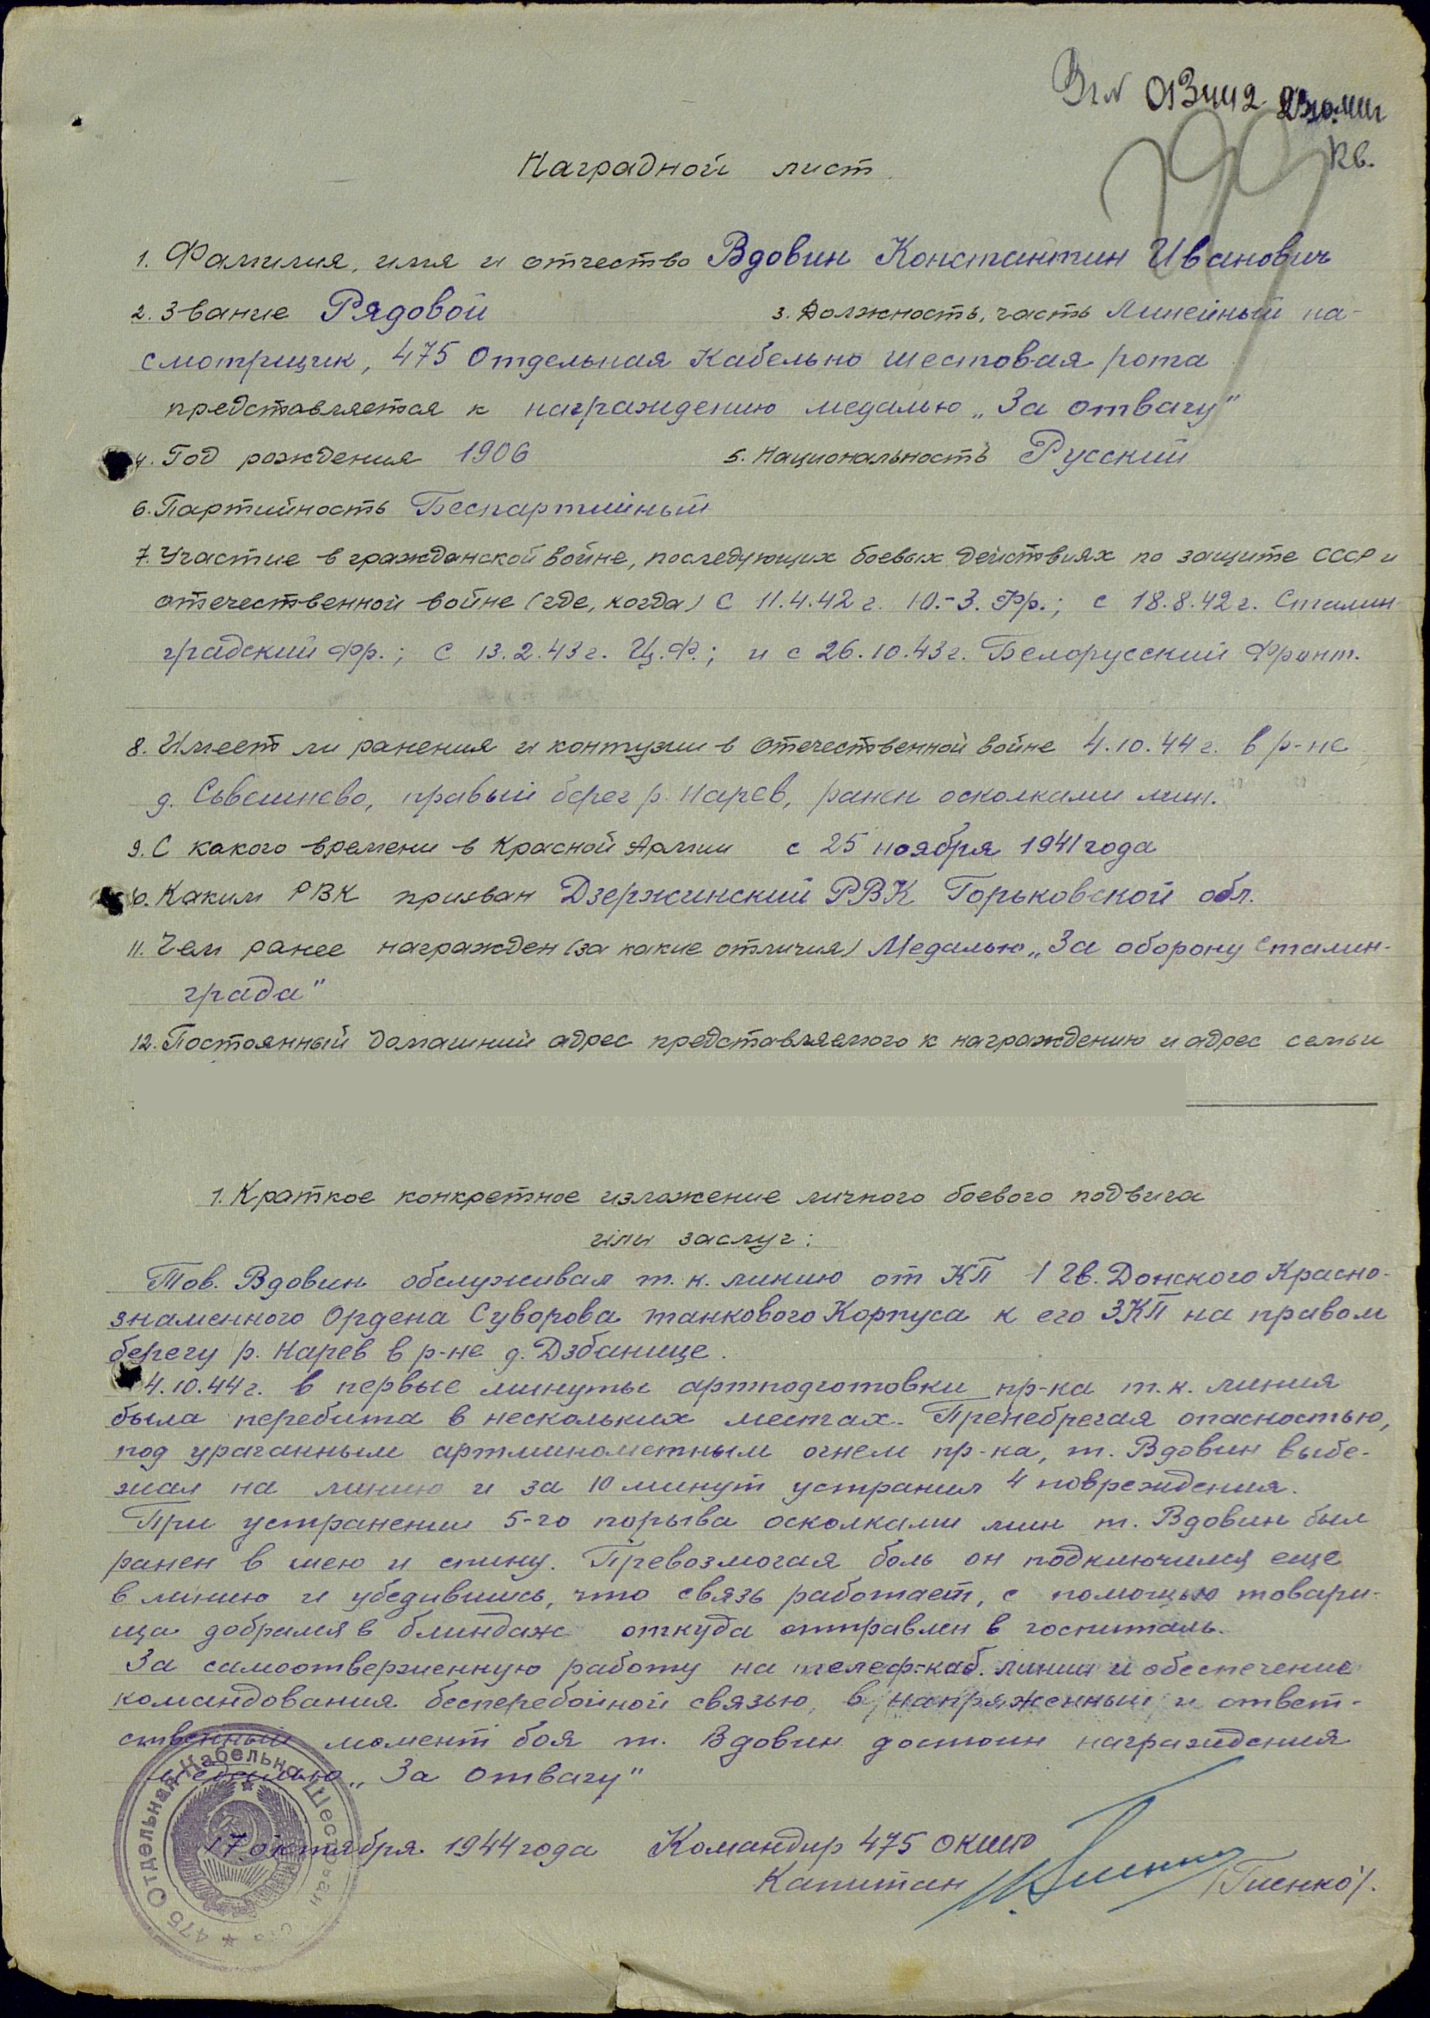 Вх№ 013442
КВ.
Наградной лист
1. Фамилия, имя и отчество Вдовин Константин Иванович
2. Звание Рядовой 3. Должность, часть Линейный на-
смотрщик, 475 Отдельная Кабельно шестовая рота
представляется к награждению медалью „За отвагу"
4. Год рождения 1906 5. Национальность Русский
6. Партийность Беспартийный
7. Участие в гражданской войне, последующих боевых действиях по защите СССР и
отечественной войне (где, когда) с 11.4.42 г. Ю.-З. Фр.; с 18.8.42 г. Сталин-
градский Фр.; с 13.2.43 г. Ц.Ф.; и с 26.10.43 г. Белорусский Фронт.
8. Имеет ли ранения и контузии в отечественной войне 4.10.44 г. в р-не
д. правый берег р. Нарев, ранен осколками мин.
9. С какого времени в Красной Армии с 25 ноября 1941 года
10. Каким РВК призван Дзержинский РВК Горьковской обл.
11. Чем ранее награжден (за какие отличия) Медалью „За оборону Сталин-
града"
12. Постоянный домашний адрес представляемого к награждению и адрес семьи
1. Краткое конкретное изложение личного боевого подвига
или заслуг:
Тов. Вдовин обслуживал т.к. линию от КП 1 Гв. Донского Красно-
знаменного Ордена Суворова танкового Корпуса к его ЗКП на правом
берегу р. Нарев в р-не д. Дзбанице.
4.10.44 г. в первые минуты артподготовки пр-ка т.к. линия
была перебита в нескольких местах. Пренебрегая опасностью,
под ураганным артминометным огнем пр-ка, т. Вдовин выбе-
жал на линию и за 10 минут устранил 4 повреждения.
При устранении 5-го порыва осколками мин т. Вдовин был
ранен в шею и спину. Превозмогая боль он подключился еще
в линию и убедившись, что связь работает, с помощью товари-
ща добрался в блиндаж откуда отправлен в госпиталь.
За самоотверженную работу на телеф-каб. линии и обеспечение
командования бесперебойной связью, в напряженный и ответ-
ственный момент боя т. Вдовин достоин награждения
медалью „За отвагу"
17 октября 1944 года Командир 475 ОКШР
Капитан /Гненко/.
475 Отдельная Кабельно Шестовая